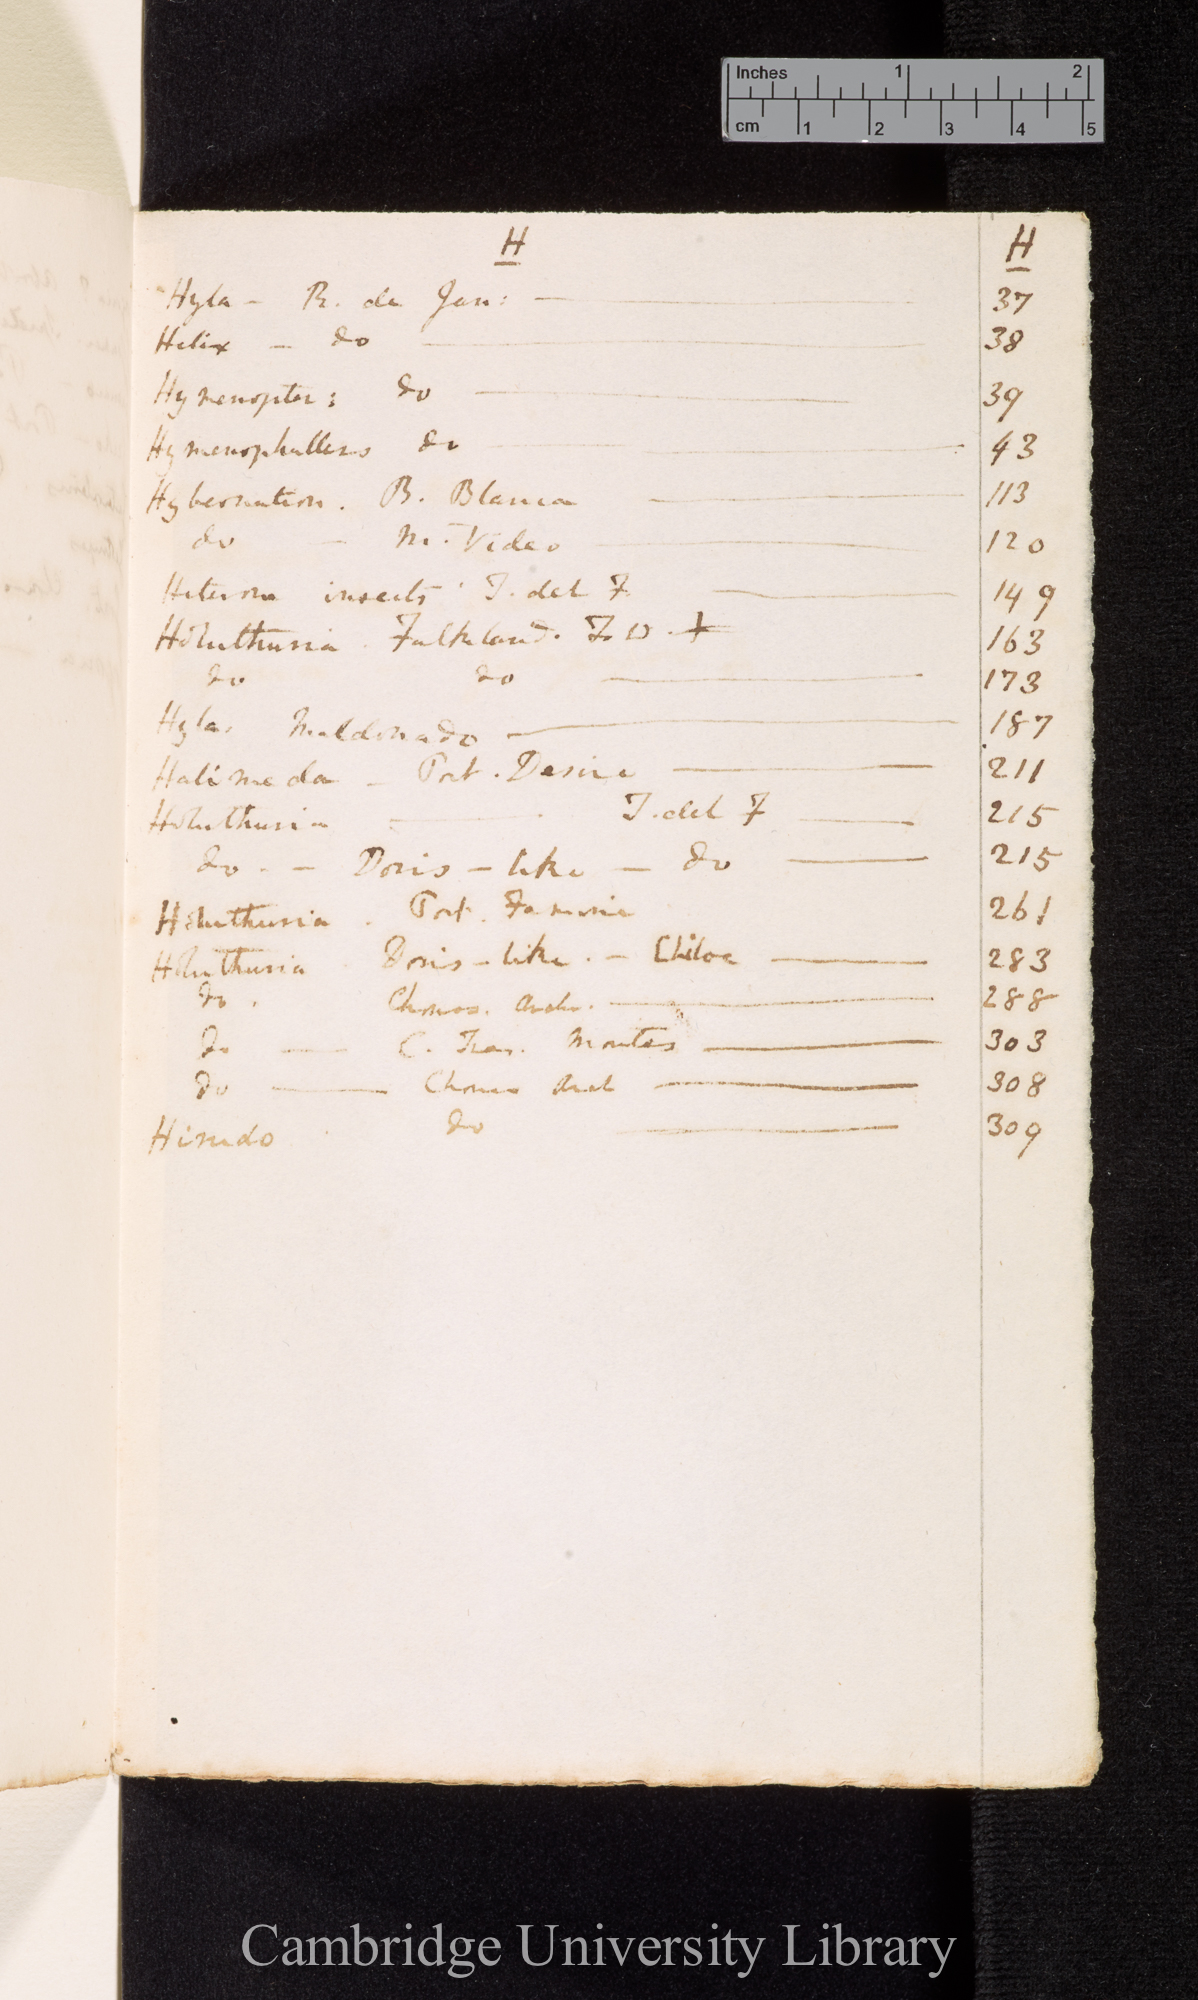 Inches 1 2
cm 1 2 3 4 5
H H
Hyla - R. de Jan: 37
Helix - do 38
Hymenopter: do 39
Hymenophallus do 43
Hybernation. B. Blanca 113
do - M. Video 120
Heterom insects T. del F. 149
Holuthuria. Falkland. Is D. + 163
do do 173
Hyla. Maldonado 187
Halimeda - Port. Desire 211
Holuthuria T. del F 215
do. - Doris-like - do 215
Holuthuria. Port. Famine 261
Holuthuria Doris-like. - Chiloe 283
do. Chonos. Arch. 288
do C. Tres. Montes 303
do Chonos Arch 308
Hirudo do 309
Cambridge University Library